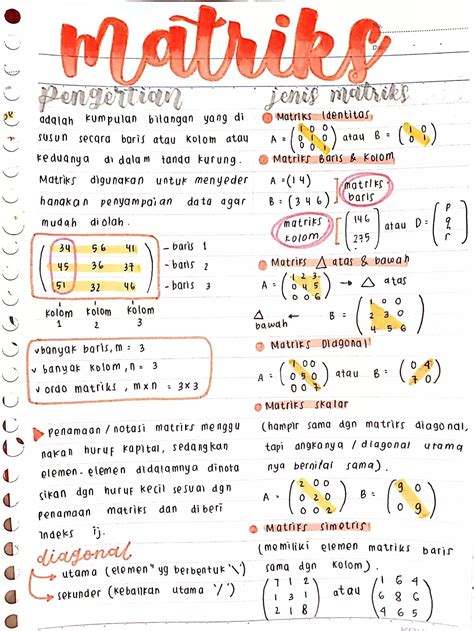 matriks
pengertian
adalah kumpulan bilangan yang di
susun secara baris atau kolom atau
keduanya di dalam tanda kurung.
Matriks digunakan untuk menyeder
hanakan penyampaian data agar
mudah diolah.
34 56 41 - baris 1
45 36 37 - baris 2
51 32 46 - baris 3
kolom kolom kolom
1 2 3
✓banyak baris, m = 3
✓banyak kolom, n = 3
✓ordo matriks, m×n = 3×3
▶ penamaan / notasi matriks menggu
nakan huruf kapital, sedangkan
elemen-elemen didalamnya dinota
sikan dgn huruf kecil sesuai dgn
penamaan matriks dan diberi
indeks ij.
diagonal
utama (elemen" yg berbentuk '\')
sekunder (kebalikan utama '/')
jenis matriks
Matriks Identitas
1 0 0
A = 0 1 0 atau B = 1 0
0 0 1 0 1
Matriks Baris & Kolom
A = (1 4) matriks
B = (3 4 6) baris
matriks 1 4 6 atau D = p
kolom 2 7 5 q
r
Matriks △ atas & bawah
1 2 3
A = 0 4 5 → △ atas
0 0 6
△ 1 0 0
bawah ← B = 2 3 0
4 5 6
Matriks Diagonal
1 0 0
A = 0 5 0 atau B = 0 4
0 0 7 7 0
Matriks Skalar
(hampir sama dgn matriks diagonal,
tapi angkanya / diagonal utama
nya bernilai sama).
2 0 0
A = 0 2 0 B = 9 0
0 0 2 0 9
Matriks simetris
(memiliki elemen matriks baris
sama dgn kolom).
7 1 2 1 6 4
1 3 1 atau 6 8 6
2 1 8 4 6 5